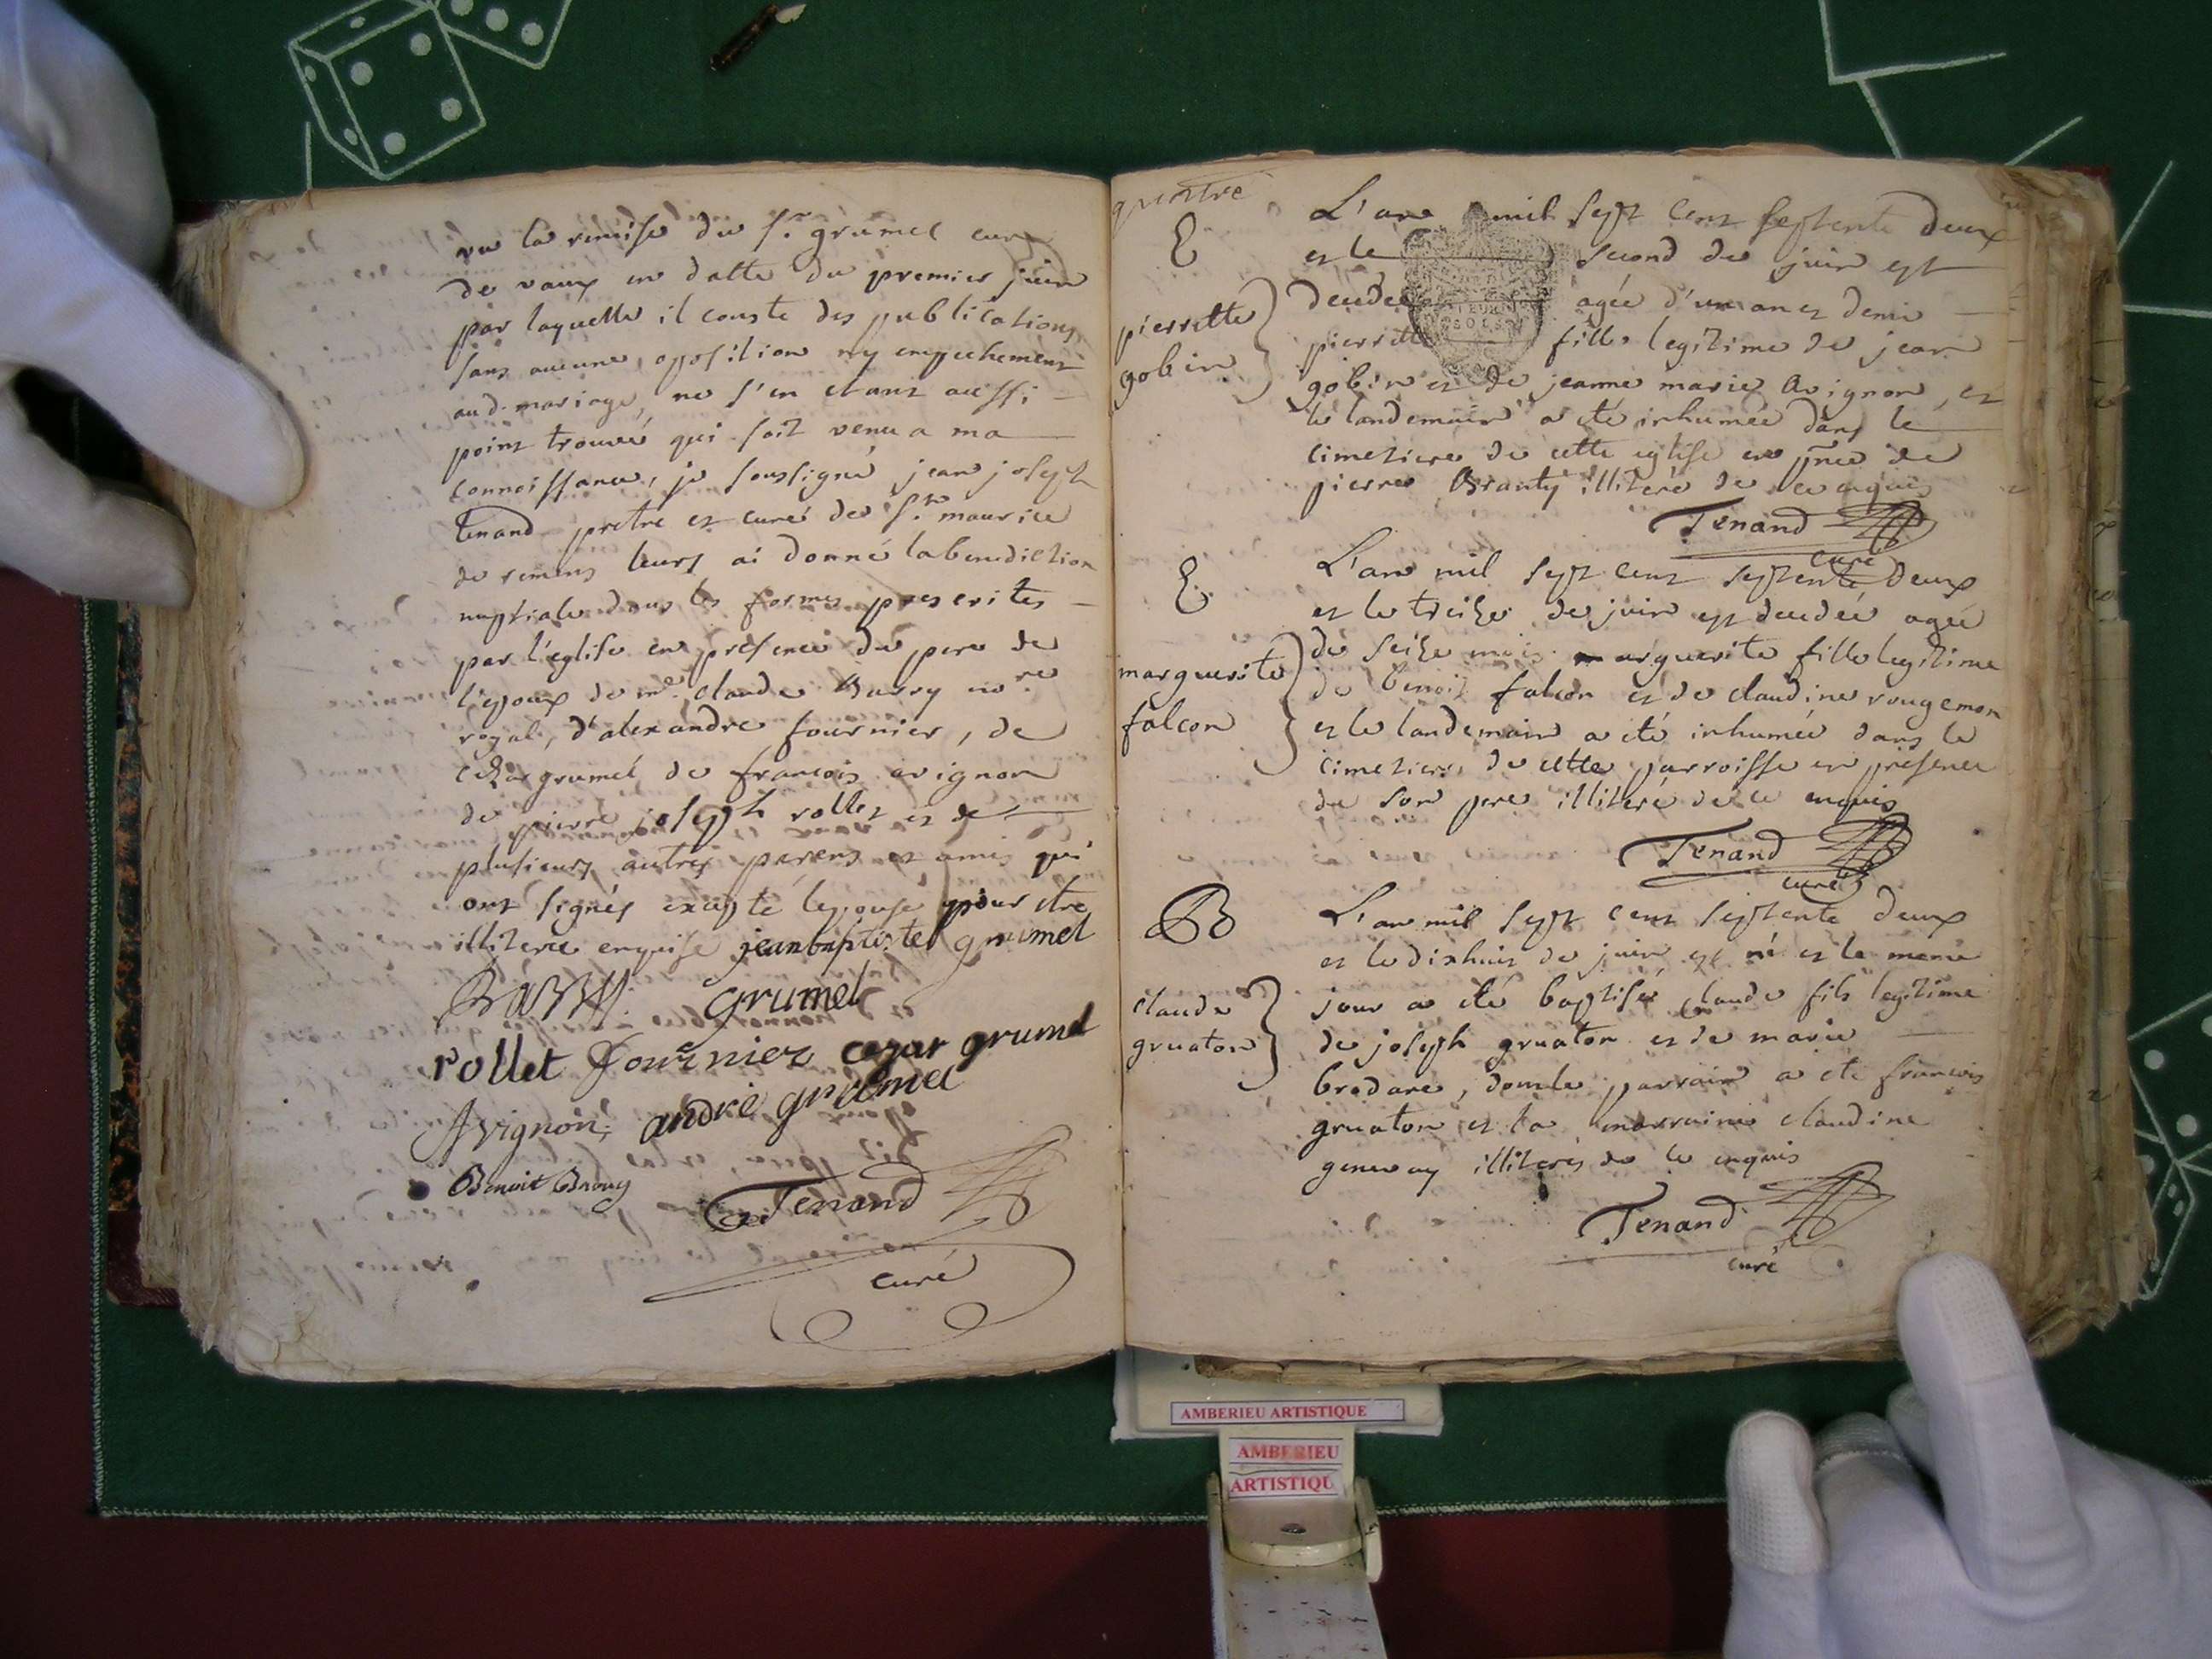 vu la remise du Sr. grumel curé
de vaux en datte du premier juin
par laquelle il conste des publications
sans aucune oposition ny empechement
aud. mariage, ne s'en etant aussi
point trouvé qui soit venu a ma
connoissance, je soussigné jean joseph
tenand pretre et curé de St. maurice
de remens leurs ai donné la benediction
nuptiale dans les formes prescrites
par l'eglise en presence du pere de
l'epoux de me. claude Barry nore
royal, d'alexandre fournier, de
cezar grumel de francois avignon
de pierre joseph rollet et de
plusieurs autres parens et amis qui
ont signés excepté lepouse pour etre
illiteree enquise jeanbaptiste grumel
Barry. grumel
rollet fournier cezar grumel
Avignon; andré grumel
Benoit
Tenand
curé
quatre
E
pierrette
gobin
L'an mil sept cent septente deux
et le second de juin est
decedee agée d'un an et demi
pierrette fille legitime de jean
gobin et de jeanne marie avignon, et
le landemain a été inhumée dans le
cimetiere de cette eglise en pnce de
pierre Branty illiteré de ce enquis
Tenand
curé
E
marguerite
falcon
L'an mil sept cent septente deux
et le treize de juin est decedée agée
de seize mois marguerite fille legitime
de benoit falcon et de claudine rougemon
et le landemain a été inhumée dans le
cimetiere de cette parroisse en presence
de son pere illiteré de ce enquis
Tenand
curé
B
claude
gruaton
L'an mil sept cent septente deux
et le dixhuit de juin est né et le meme
jour a été baptisé claude fils legitime
de joseph gruaton et de marie
bradare, dont le parrain a été francois
gruaton et la marraine claudine
genevay illiterés de ce enquis
Tenand
curé
AMBERIEU ARTISTIQUE
AMBERIEU
ARTISTIQU